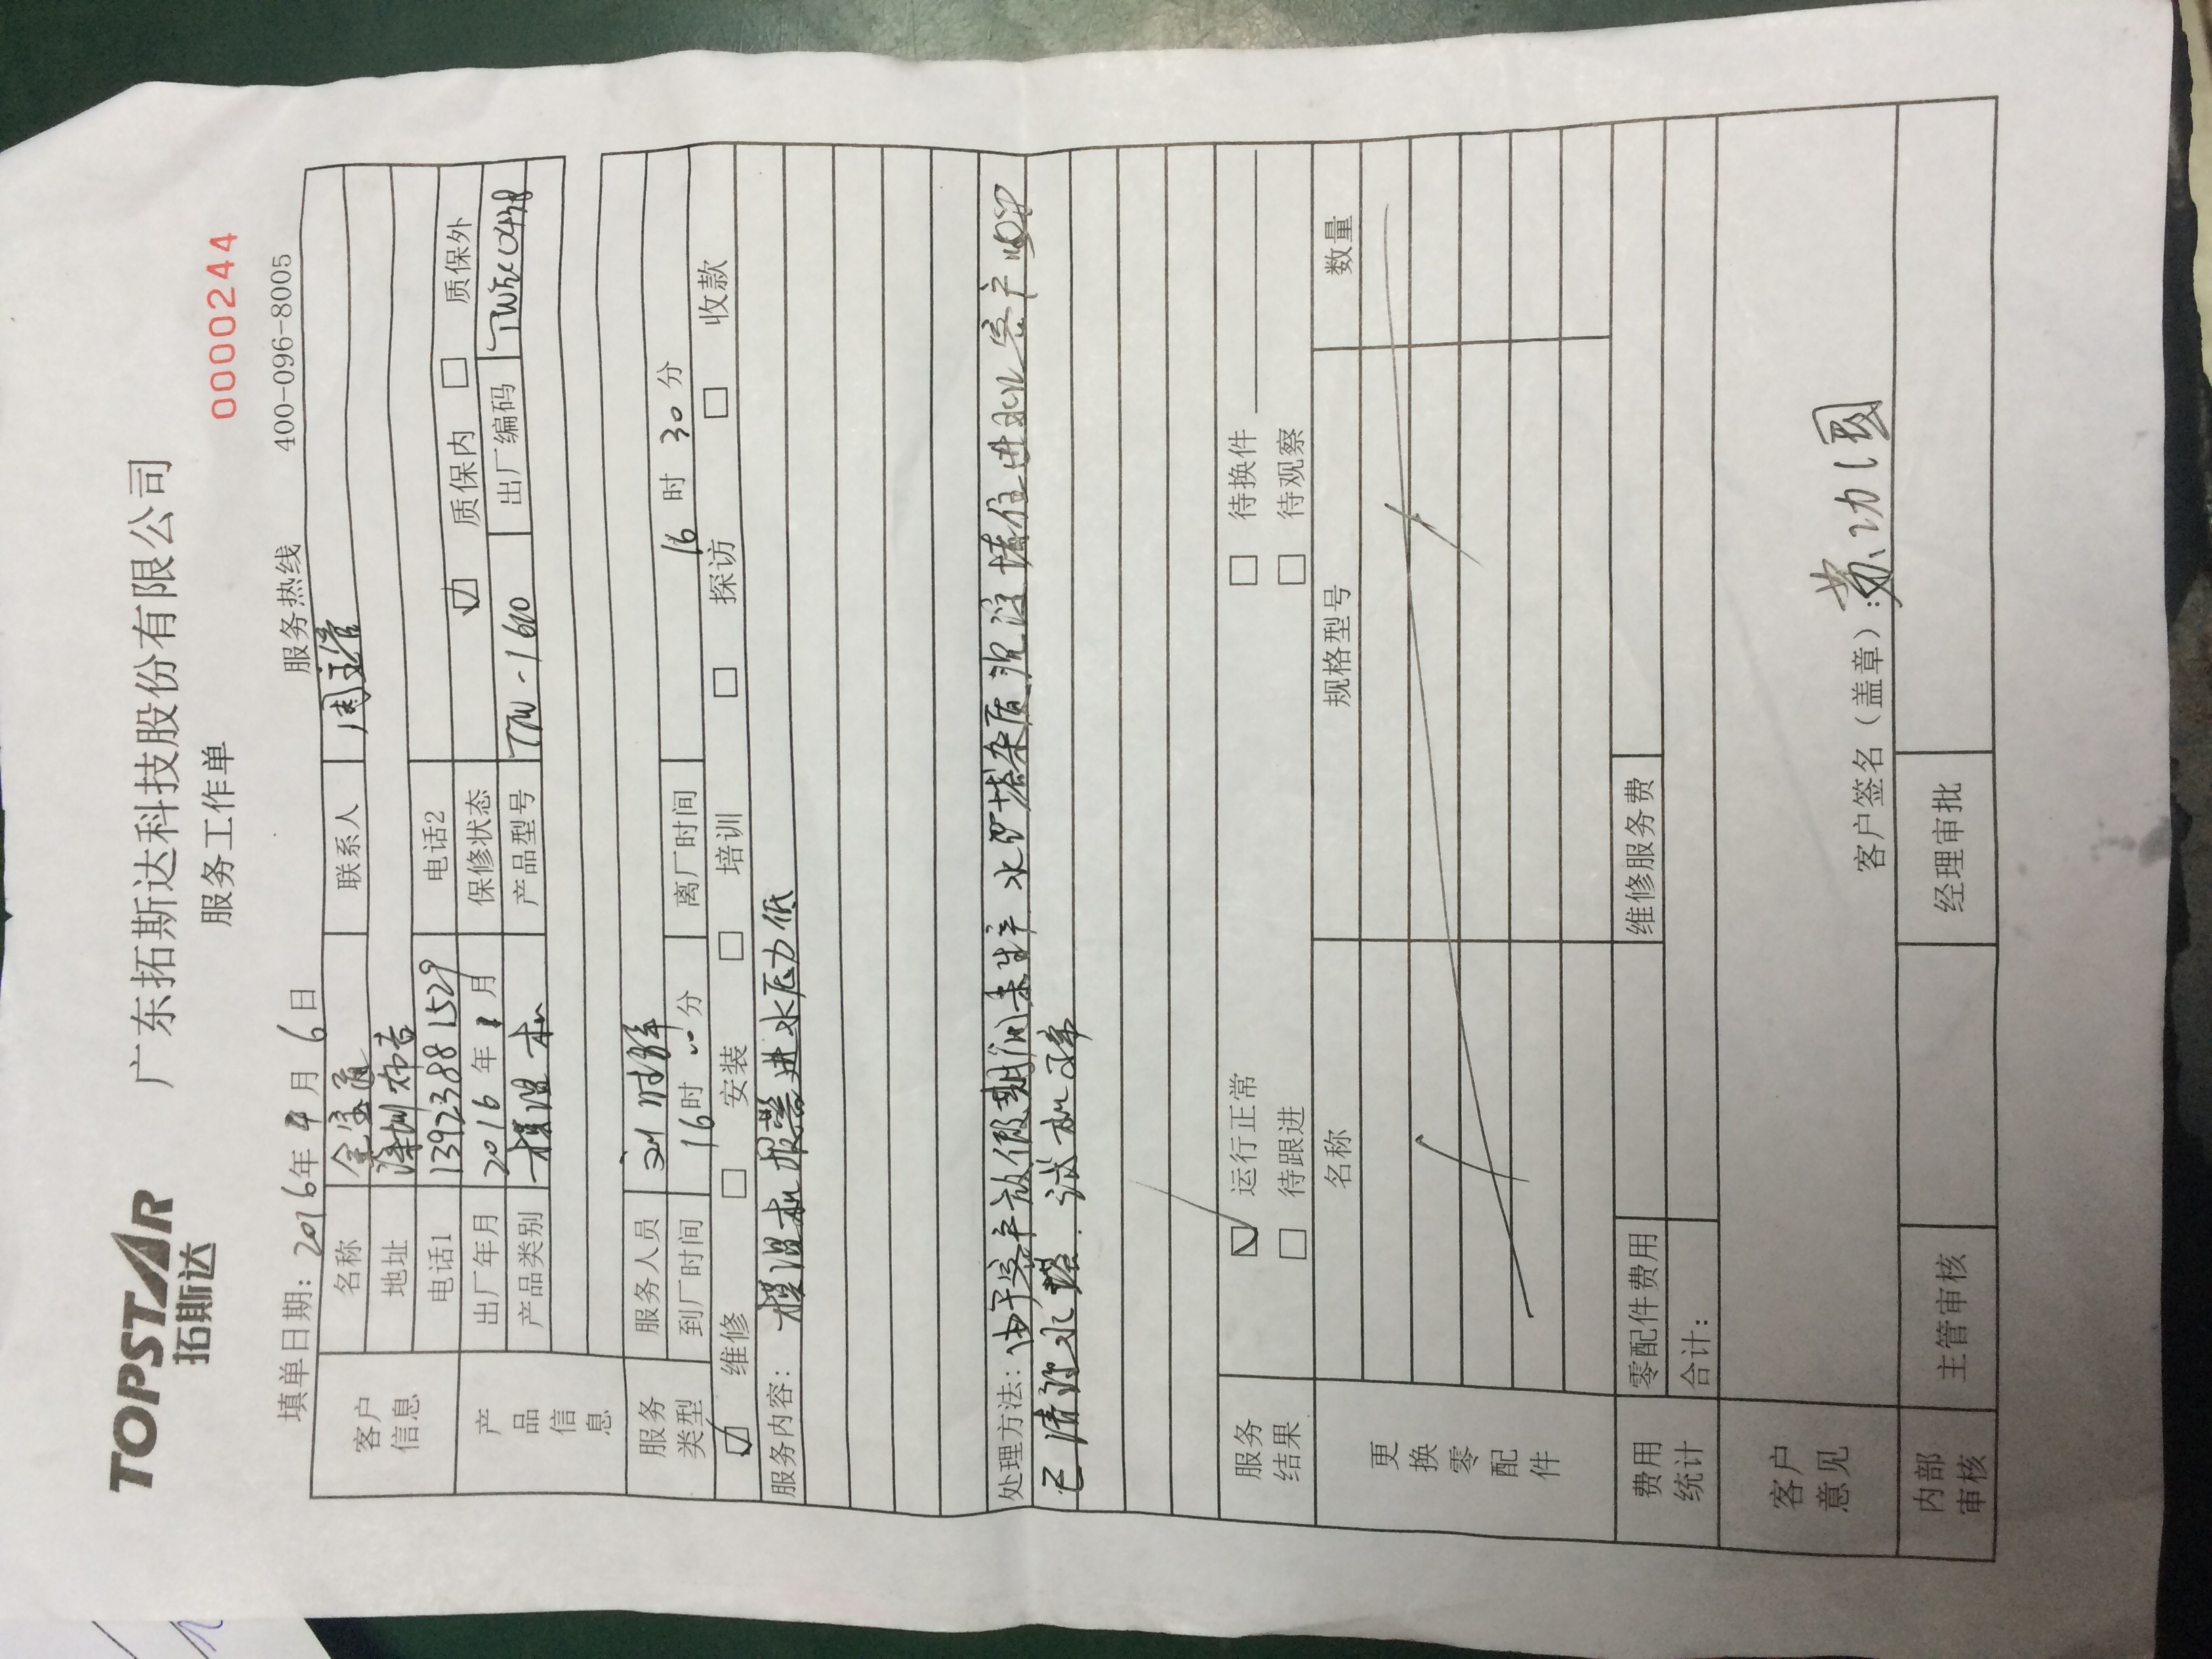 TOPSTAR
拓斯达
广东拓斯达科技股份有限公司
服务工作单
0000244
填单日期: 2016年4月6日 服务热线 400-096-8005
客户信息
名称 联系人 周主管
地址 深圳布吉
电话1 13923881529 电话2
产品信息
出厂年月 2016年1月 保修状态 ☑ 质保内 □ 质保外
产品类别 模温机 产品型号 TTW-1610 出厂编码
服务类型
服务人员 刘时辉
到厂时间 16时00分 离厂时间 16时30分
☑ 维修 □ 安装 □ 培训 □ 探访 □ 收款
服务内容: 模温机报警进水压力低
处理方法: 由于客户放假期间未生产 水里杂质沉淀堵住进水口 客户
已清理水路.试机正常
服务结果
☑ 运行正常 □ 待换件
□ 待跟进 □ 待观察
更换零配件
名称 规格型号 数量
费用统计
零配件费用 维修服务费
合计:
客户意见
客户签名(盖章): 苏功国
内部审核
主管审核 经理审批